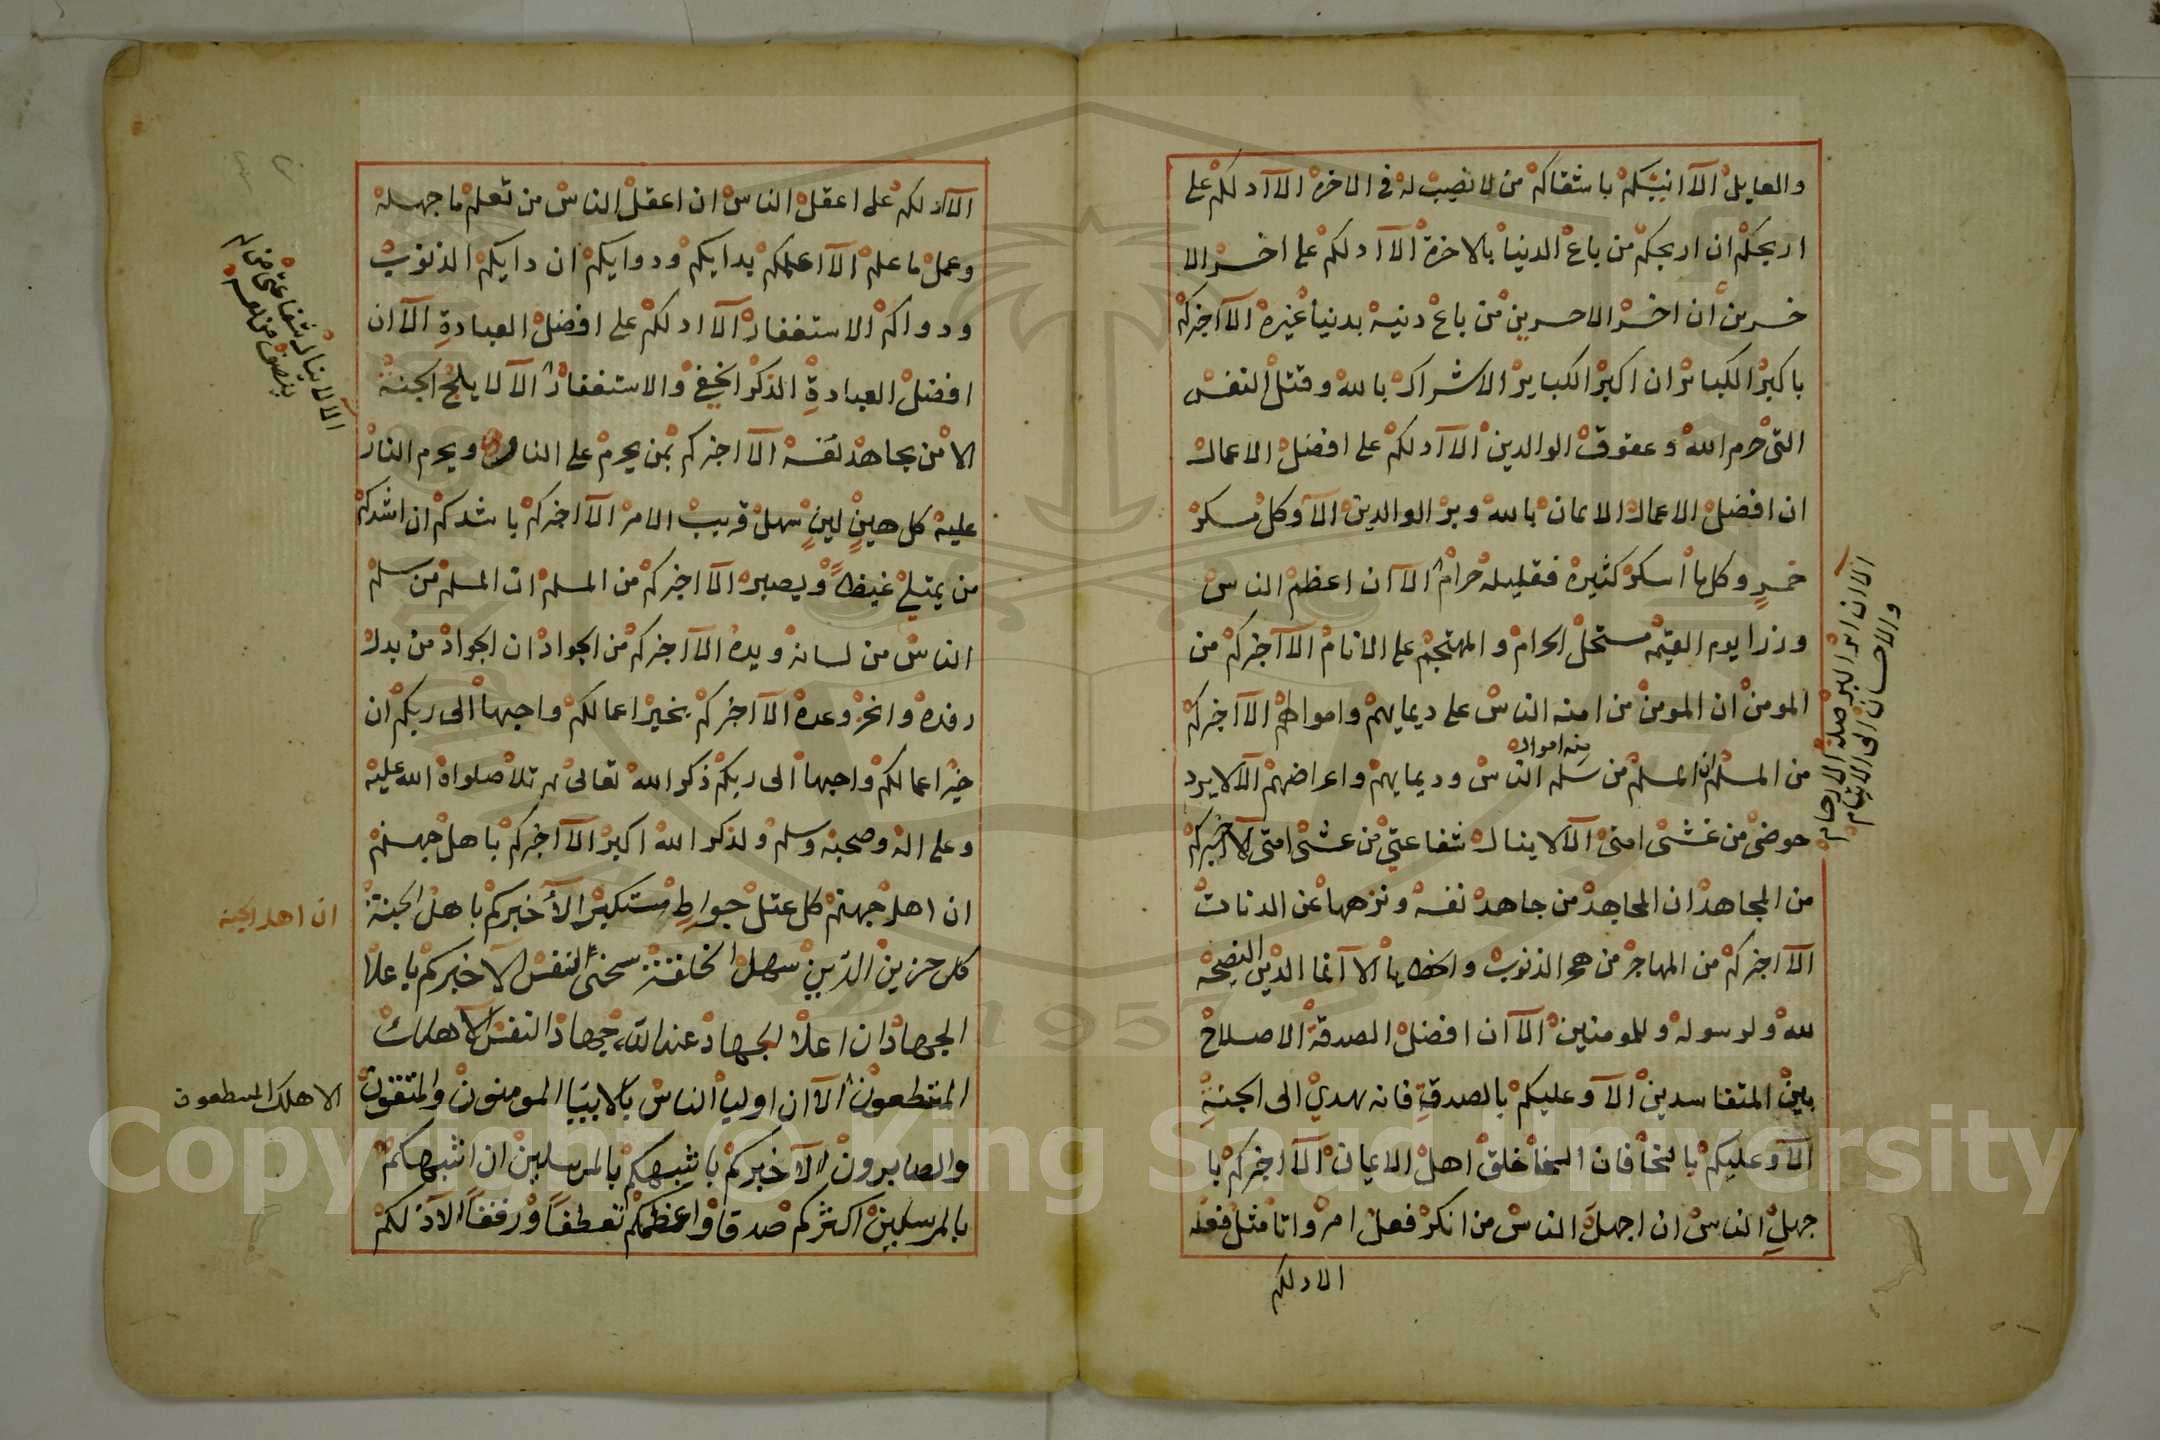 والعايل الا انبيكم باشقاكم من لا نصيب له فى الاخره الا ادلكم على
اربحكم ان اربحكم من باع الدنيا بالاخرة الا ادلكم على اخسر الا
خسرين ان اخسر الاخسرين من باع دنيه بدنيا غيره الا اخبركم
باكبر الكبائر ان اكبر الكباير الاشراك بالله وقتل النفس
التى حرم الله وعقوق الوالدين الا ادلكم على افضل الاعمال
ان افضل الاعمال الايمان بالله وبر الوالدين الا وكل مسكر
خمرٍ وكل ما اسكر كثيره فقليله حرام الا ان اعظم الناس
وزرا يوم القيمه مستحل الحرام والمهتجم على الانام الا اخبركم من
المومن ان المومن من امنه الناس على ديمايهم واموالهم الا اخبركم
من المسلم ان المسلم من سلم الناس وديمايهم واعراضهم الا لا يرد
منه اموال
حوضى من غشنى امتى الا لا ينال شفاعتي من غشنى امتى الا اخبركم
من المجاهد ان المجاهد من جاهد نفسه ونزهها عن الدنات
الا اخبركم من المهاجر من هجر الذنوب والخطايا الا انما الدين النصيحه
لله ولرسوله وللمومنين الا ان افضل الصدقة الاصلاح
بين المتفاسدين الا وعليكم بالصدقةِ فانه يهدي الى الجنةِ
الا وعليكم بالسخا فان السخا خلق اهل الايمان الا اخبركم با
جهلِ الناس ان اجهل الناس من انكر فعل امرٍ واتا مثل فعله
الا ادلكم
الا ان ابر البر صلة الارحام
والاحسان الى الايتام
الا ادلكم على اعقل الناس ان اعقل الناس من تعلم ما جهله
وعمل ما علم الا اعلمكم بدايكم ودوايكم ان دايكم الذنوب
ودواكم الاستغفار الا ادلكم على افضل العبادةِ الا ان
افضل العبادةِ الذكر الخفي والاستغفار الا لا يلج الجنة
الا من يجاهد نفسه الا اخبركم بمن يحرم على النار ويحرم النار
عليه كل هينٍ لينٍ سهل قريب الامر الا اخبركم باشدكم ان اشدكم
من يمتلي غيظاً ويصبر الا اخبركم من المسلم ان المسلم من سلم
الناس من لسانه ويده الا اخبركم من الجواد ان الجواد من بدل
رفده وانجز وعده الا اخبركم بخير اعمالكم واحبها الى ربكم ان
خير اعمالكم واحبها الى ربكم ذكر الله تعالى ثم تلا صلواة الله عليه
وعلى اله وصحبه وسلم ولذكر الله اكبر الا اخبركم باهل جهنم
ان اهل جهنم كل عتل جواظٍ مستكبر الا اخبركم باهل الجنة
كل حزين الدين سهل الخلقة سخى النفس الا اخبركم باعلا
الجهاد ان اعلا الجهاد عند الله جهاد النفس الا هلك
المتقطعون الا ان اوليا الناس بالانبيا المومنون والمتقون
والصابرون الا اخبركم باشبهكم بالمرسلين ان اشبهكم
بالمرسلين اكثركم صدقا واعظمكم تعطفاً ورفقاً الا ادلكم
الا لا ينال شفاعتى من لم
ينصف من نفسه
ان اهل الجنه
الا هلك المتنطعون
Copyright © King Saud University
1957